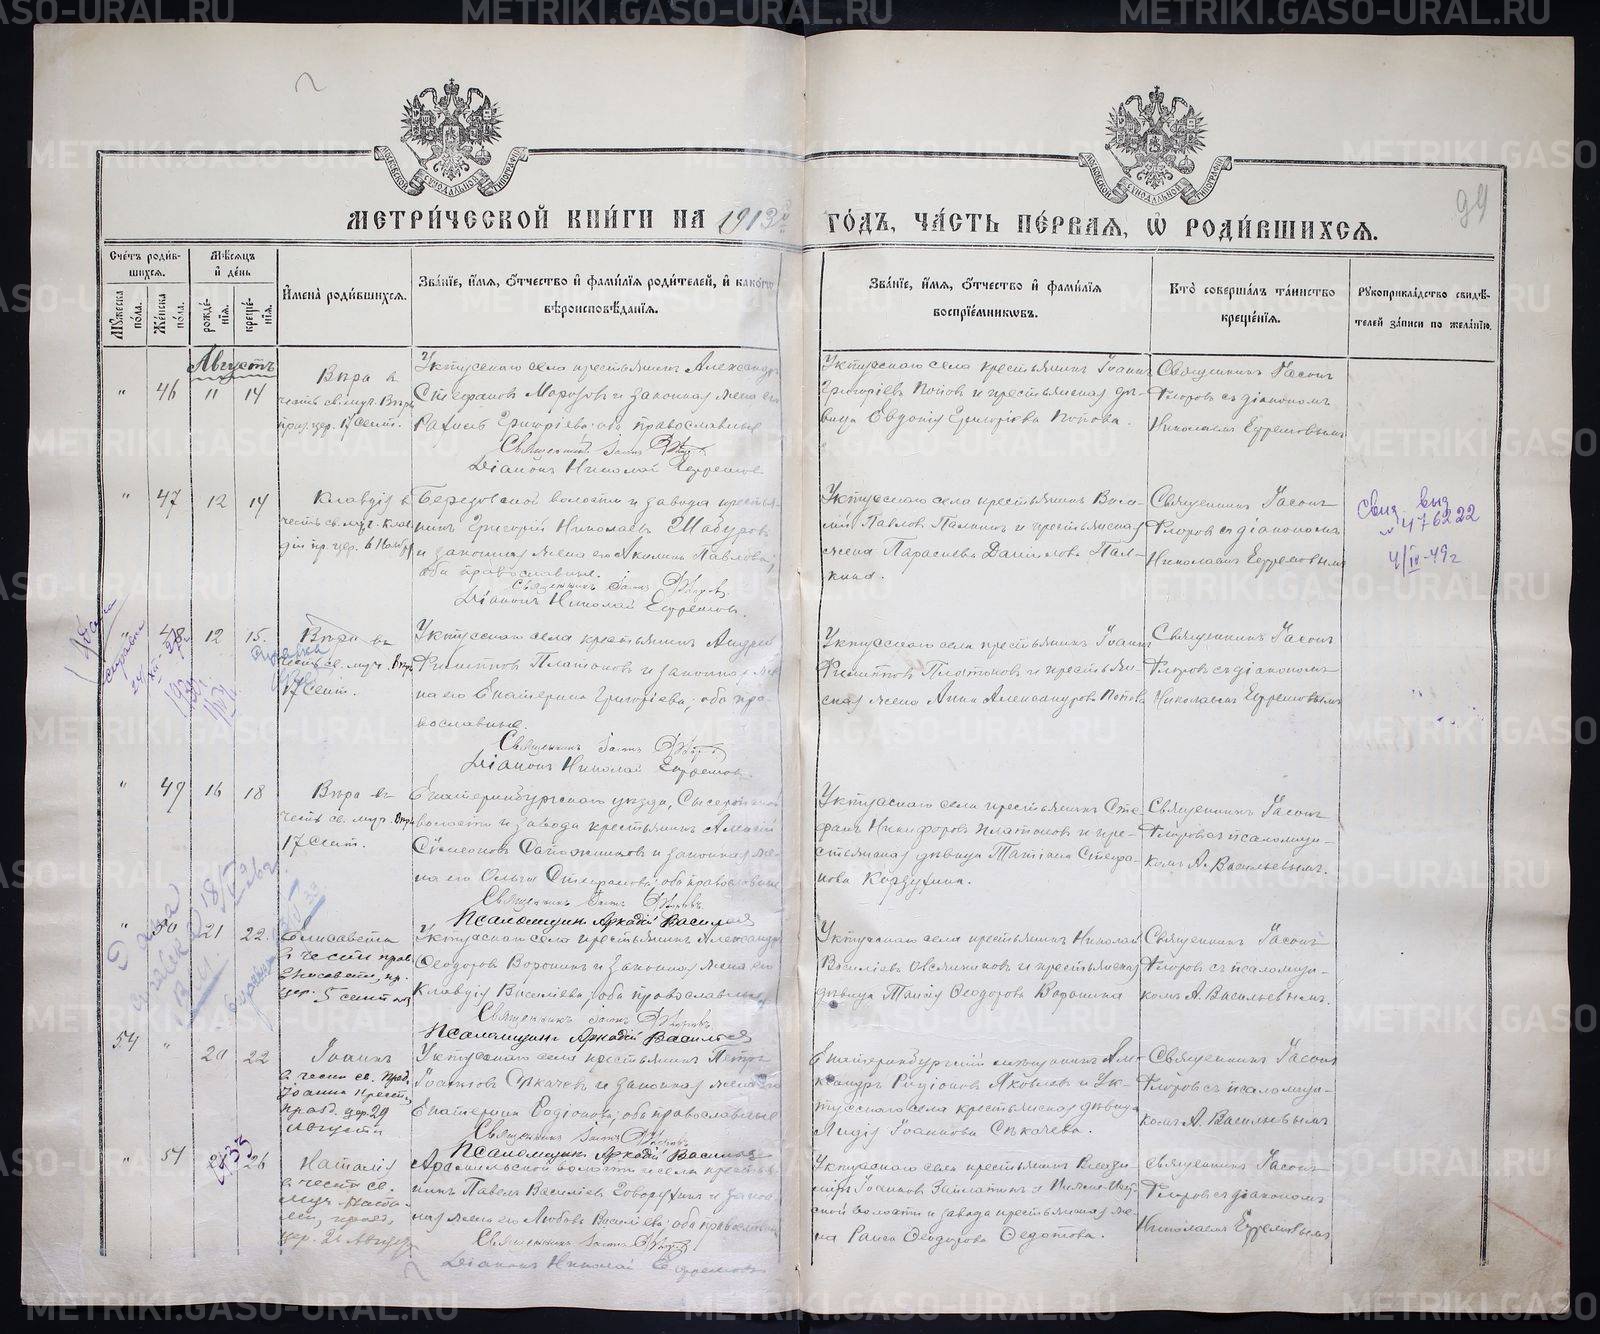 МЕТРИ́ЧЕСКОЙ КНИ́ГИ НА 1913й
ГО́ДЪ, ЧА́СТЬ ПЕ́РВАЯ, Ѡ҆ РОДИ́ВШИХСЯ.
94
Сче́тъ роди́вшихся.
Мꙋ́жеска по́ла.
Же́нска по́ла.
Мѣ́сяцъ и҆ де́нь
рожде́нїѧ.
креще́нїѧ.
И҆мена̀ роди́вшихсѧ.
Зва́нїе, и҆́мѧ, ѻ҆́тчество и҆ фами́лїѧ роди́телей, и҆ како́гѡ
вѣроисповѣ́данїѧ.
Зва́нїе, и҆́мѧ, ѻ҆́тчество и҆ фами́лїѧ
воспрїе́мникѡвъ.
Кто̀ соверша́лъ та́инство
креще́нїѧ.
Рꙋкоприкла́дство свидѣ́-
телей за́писи по жела́нїю.
Августъ
" 46 11 14
Вѣра въ
честь св. муч. Вѣры
праз. цер. 17 Сент.
Уктусскаго села крестьянинъ Александръ
Стефановъ Морозовъ и законная жена его
Рахиль Григоріева; оба православные
Священникъ Іасонъ Флоровъ
Діаконъ Николай Ефремовъ
Уктусскаго села крестьянинъ Іоаннъ
Григоріевъ Поповъ и крестьянская дѣ-
вица Евдокія Григоріева Попова.
Священникъ Іасонъ
Флоровъ съ діакономъ
Николаемъ Ефремовымъ
" 47 12 14
Клавдія въ
честь св. муч. Клав
діи пр. цер. 6 Ноябр
Березовской волости и завода кресть-
янинъ Григорій Николаевъ Шабуровъ
и законная жена его Акилина Павлова;
оба православные.
Священникъ Іасонъ Флоровъ
Діаконъ Николай Ефремовъ.
Уктусскаго села крестьянинъ
Павловъ Палкинъ и крестьянская
жена Параскева Даніилова Пал-
кина.
Священникъ Іасонъ
Флоровъ съ діакономъ
Николаемъ Ефремовымъ
476222
4/IV-49г
" 48 12 15.
Вѣра въ
честь св. муч. Вѣры
17 Сент.
Уктусскаго села крестьянинъ Андрей
Филипповъ Платоновъ и законная же-
на его Екатерина Григоріева; оба пра-
вославные.
Священникъ Іасонъ Флоровъ
Діаконъ Николай Ефремовъ.
Уктусскаго села крестьянинъ Іоаннъ
Филипповъ Платоновъ и крестьян-
ская жена Анна Александрова Попова
Священникъ Іасонъ
Флоровъ съ діакономъ
Николаемъ Ефремовымъ
" 49 16 18
Вѣра въ
честь св. муч. Вѣры
17 Сент.
Екатеринбургскаго уѣзда, Сысертской
волости и завода крестьянинъ Алексій
Сѵмеоновъ Сапожниковъ и законная же-
на его Ольга Стефанова; оба православные
Священникъ Іасонъ Флоровъ.
Псаломщикъ Аркадій Васильевъ
Уктусскаго села крестьянинъ Сте-
фанъ Никифоровъ Платоновъ и кре-
стьянская дѣвица Татіана Стефа-
нова Корзухина.
Священникъ Іасонъ
Флоровъ съ псаломщи-
комъ А. Васильевымъ.
" 50 21 22
Елисавета
въ честь прав.
Елисаветы, пр.
цер. 5 сент
Уктусскаго села крестьянинъ Александръ
Ѳеодоровъ Воронинъ и законная жена его
Клавдія Василіева; оба православные
Священникъ Іасонъ Флоровъ.
Псаломщикъ Аркадій Васильевъ
Уктусскаго села крестьянинъ Николай
Василіевъ Овсянниковъ и крестьянская
дѣвица Таисія Ѳеодорова Воронина
Священникъ Іасонъ
Флоровъ съ псаломщи-
комъ А. Васильевымъ.
54 " 20 22
Іоаннъ
въ честь св. прор.
Іоанна Крест.,
празд. цер. 29
Августа
Уктусскаго села крестьянинъ Петръ
Іоанновъ Сѣкачевъ и законная жена его
Екатерина Родіонова; оба православные
Священникъ Іасонъ Флоровъ
Псаломщикъ Аркадій Васильевъ
Екатеринбургскій мѣщанинъ Але-
ксандръ Родіоновъ Яковлевъ и Ук-
тусскаго села крестьянская дѣвица
Лидія Іоаннова Сѣкачева.
Священникъ Іасонъ
Флоровъ съ псаломщи-
комъ А. Васильевымъ
" 51 26
Наталія
въ честь св.
муч. Ната-
ліи, празд.
цер. 26 Август
Арамильской волости и села кресть-
янинъ Павелъ Василіевъ Говорухинъ и закон-
ная жена его Любовь Василіева; оба православные
Священникъ Іасонъ Флоровъ
Діаконъ Николай Ефремовъ
Уктусскаго села крестьянинъ
Іоанновъ и
ской волости и завода крестьянская же-
на Раиса Ѳеодорова Ѳедотова.
Священникъ Іасонъ
Флоровъ съ діакономъ
Николаемъ Ефремовымъ
METRIKI.GASO-URAL.RU